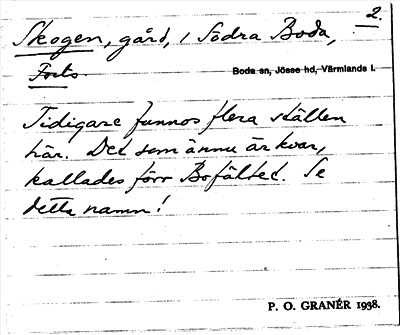 2.
Skogen, gård, i Södra Boda,
Forts. Boda sn, Jösse hd, Värmlands l.
Tidigare funnos flera ställen
här. Det som ännu är kvar,
kallades förr Bofältet. Se
detta namn!
P. O. GRANÉR 1938.